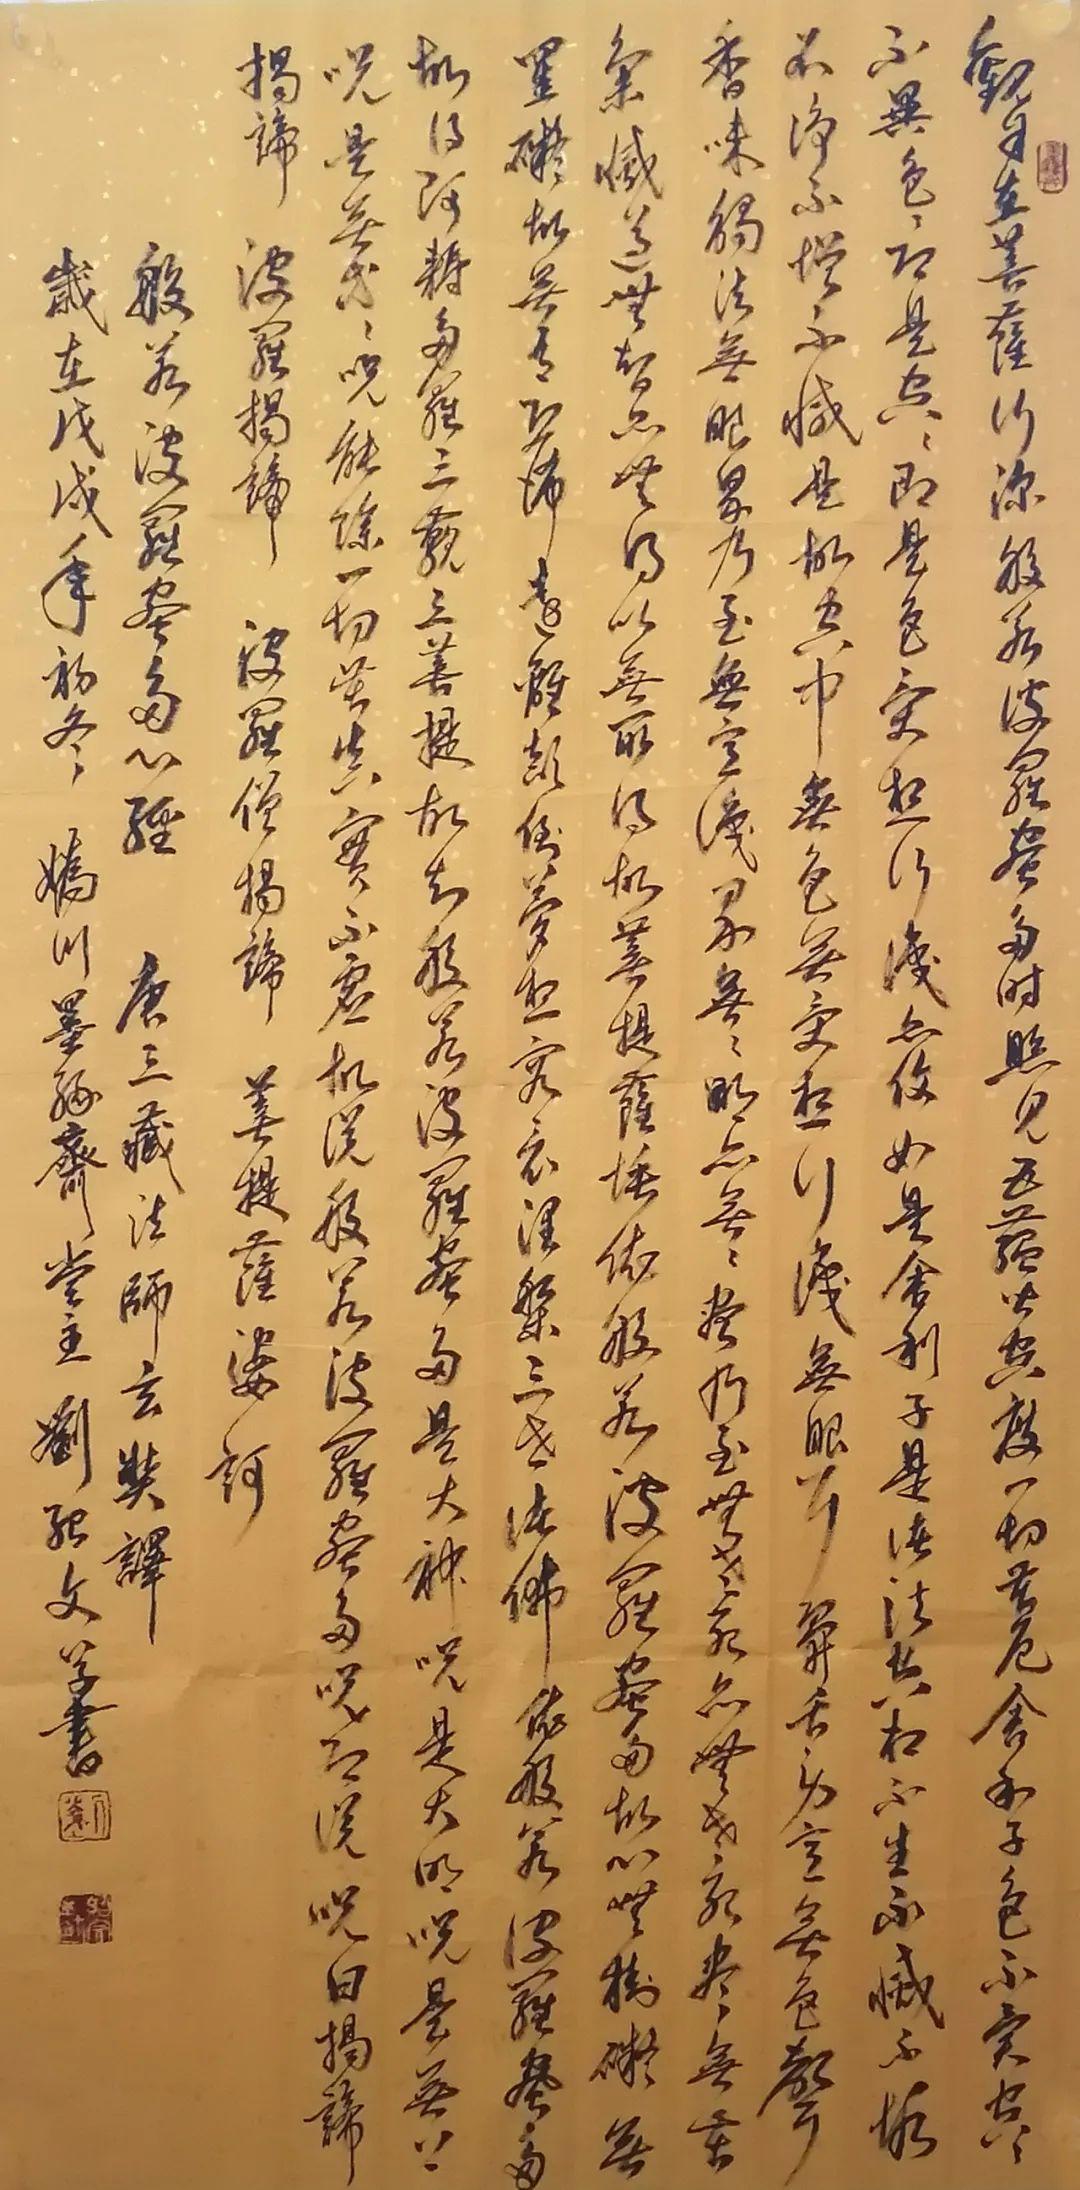 觀自在菩薩行深般若波羅蜜多時照見五蘊皆空度一切苦厄舍利子色不異空空
不異色色即是空空即是色受想行識亦復如是舍利子是諸法空相不生不滅不垢
不淨不增不減是故空中無色無受想行識無眼耳鼻舌身意無色聲
香味觸法無眼界乃至無意識界無無明亦無無明盡乃至無老死亦無老死盡無苦
集滅道無智亦無得以無所得故菩提薩埵依般若波羅蜜多故心無掛礙無
罣礙故無有恐怖遠離顛倒夢想究竟涅槃三世諸佛依般若波羅蜜多
故得阿耨多羅三藐三菩提故知般若波羅蜜多是大神呪是大明呪是無上
呪是無等等呪能除一切苦真實不虛故說般若波羅蜜多呪即說呪曰揭諦
揭諦 波羅揭諦 波羅僧揭諦 菩提薩婆訶
般若波羅蜜多心經 唐三藏法師玄奘譯
歲在戊戌年初冬 媯川墨緣齋堂主 劉 文學書